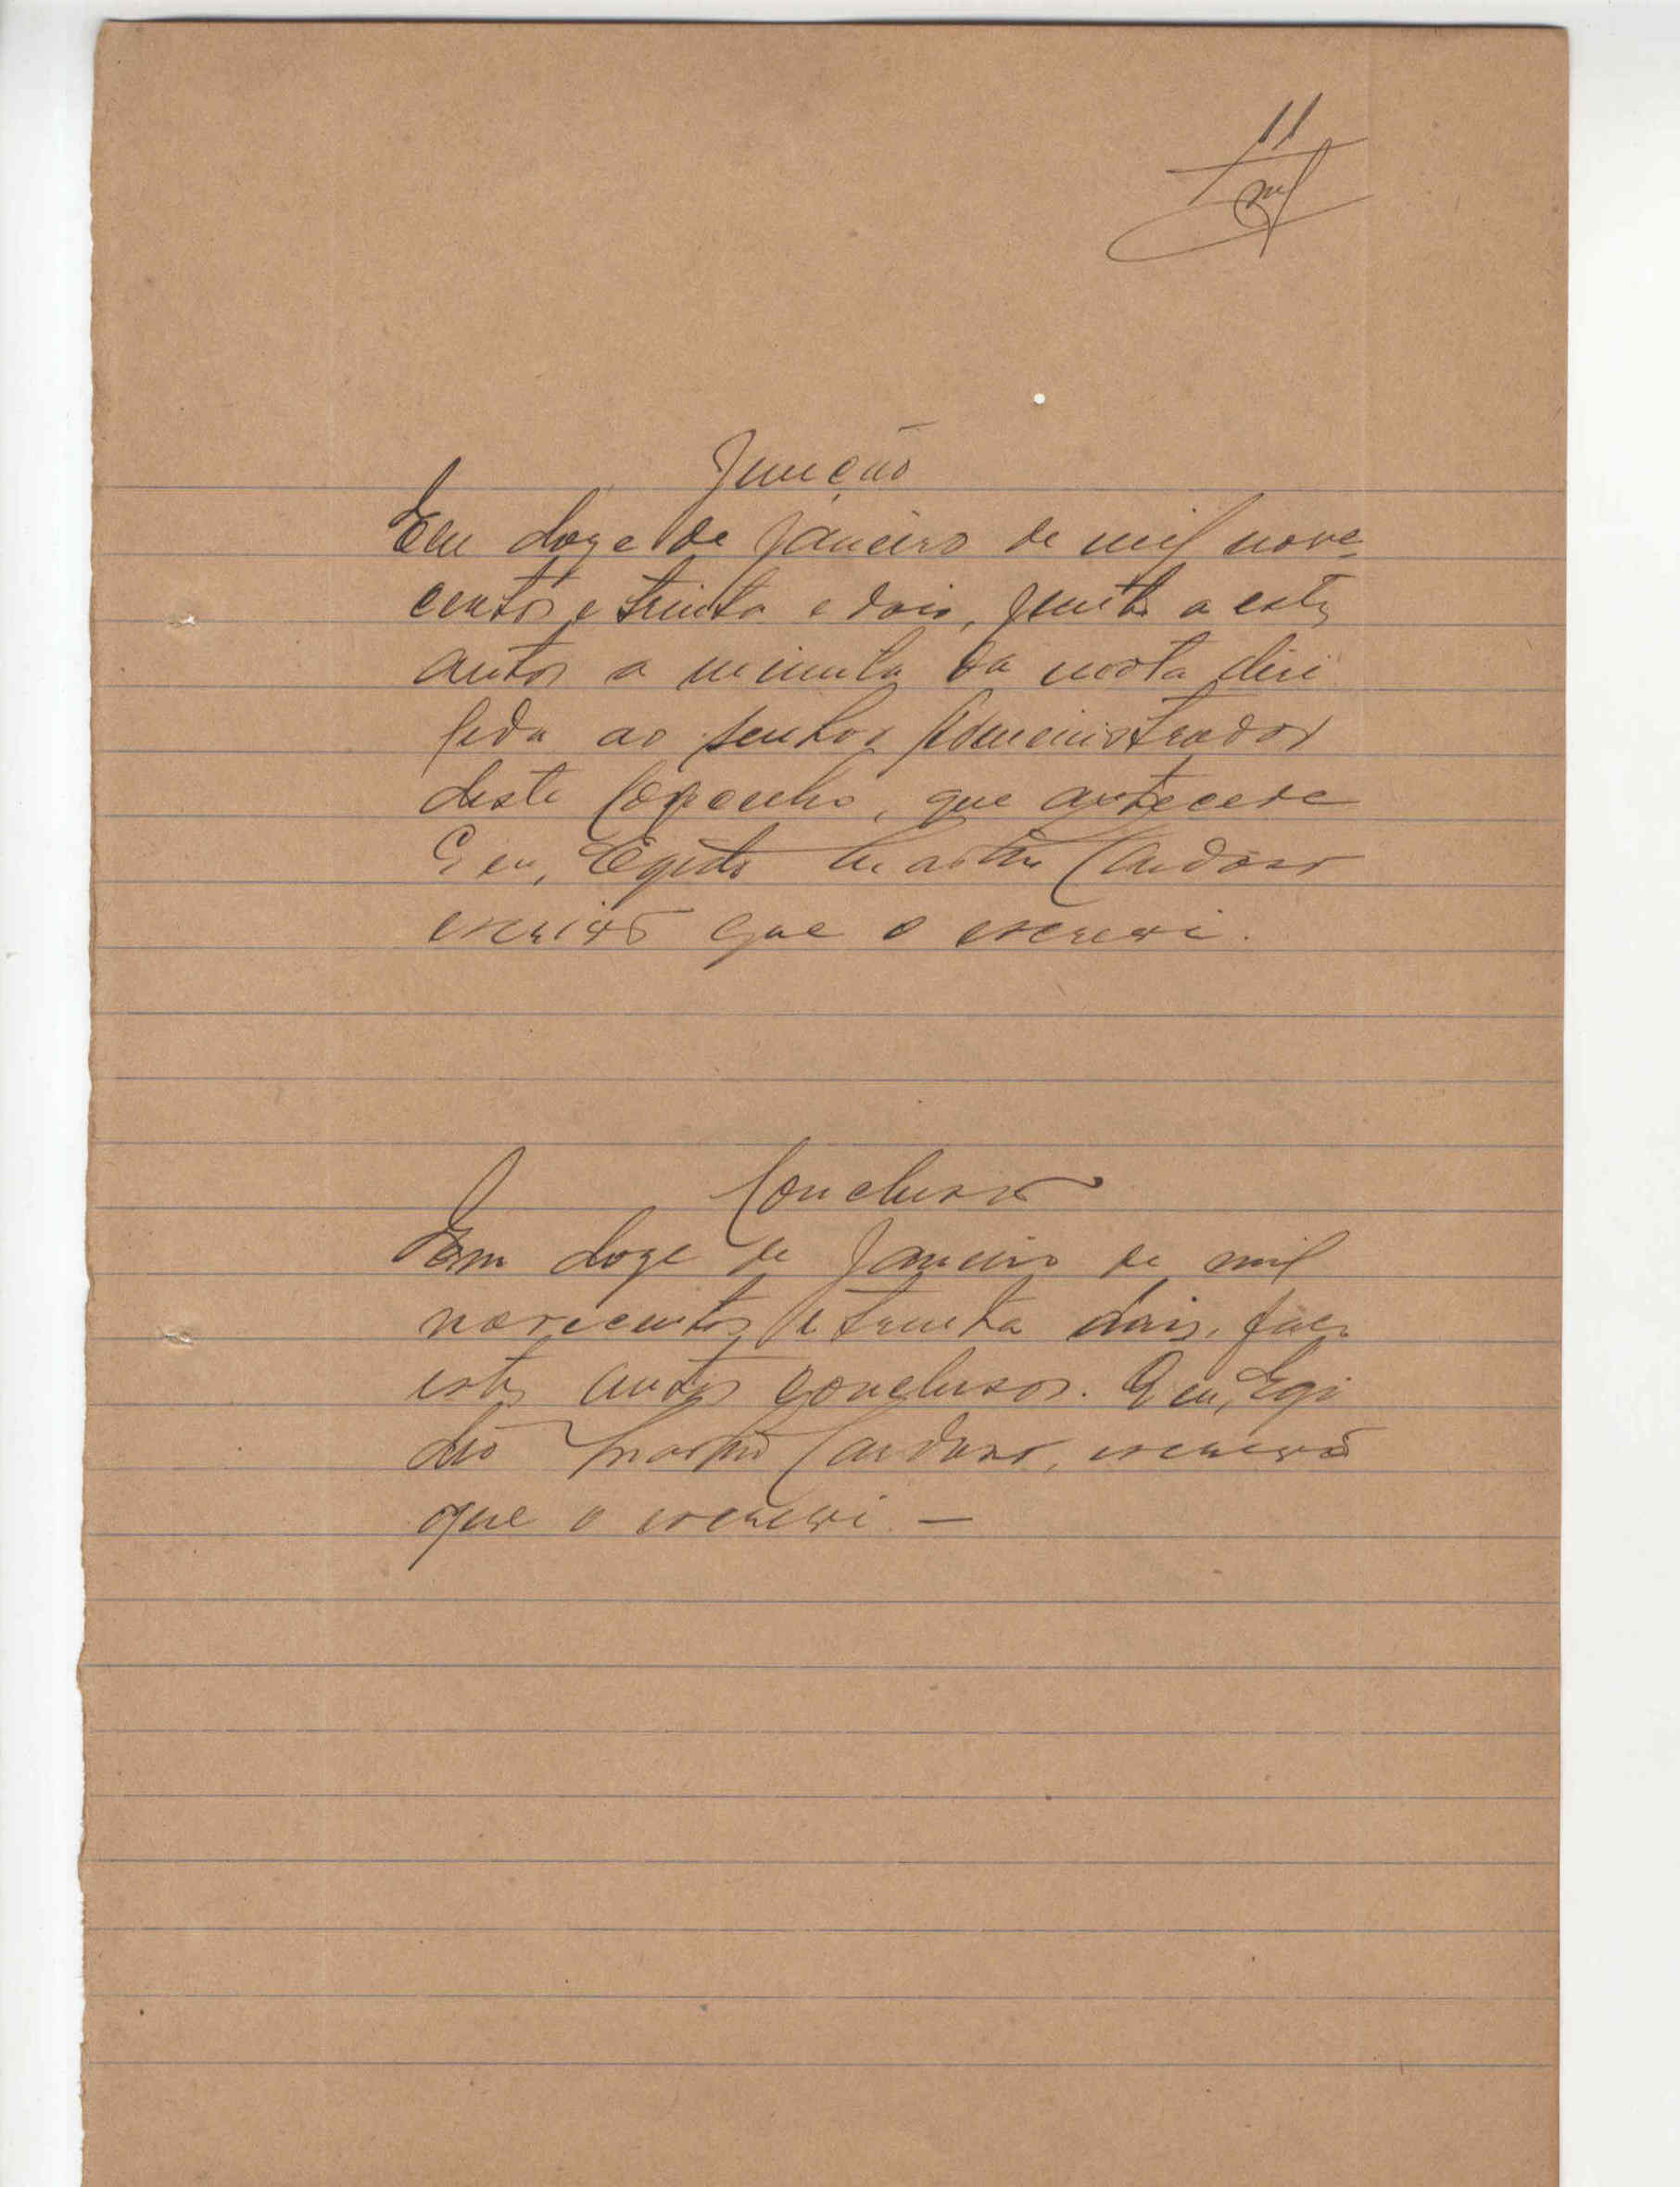 11
Junção
Em doze de Janeiro de mil nove-
centos e trinta e dois, junto a estes
autos a minuta da nota diri
gida ao senhor Administrador
deste Concelho, que antecede
E eu, Egidio Martins Cardoso
escrivão que o escrevi.
Conclusão
Em doze de Janeiro de mil
novecentos e trinta dois, faço
estes autos conclusos. E eu, Egi
dio Martins Cardoso, escrivão
que o escrevi. —